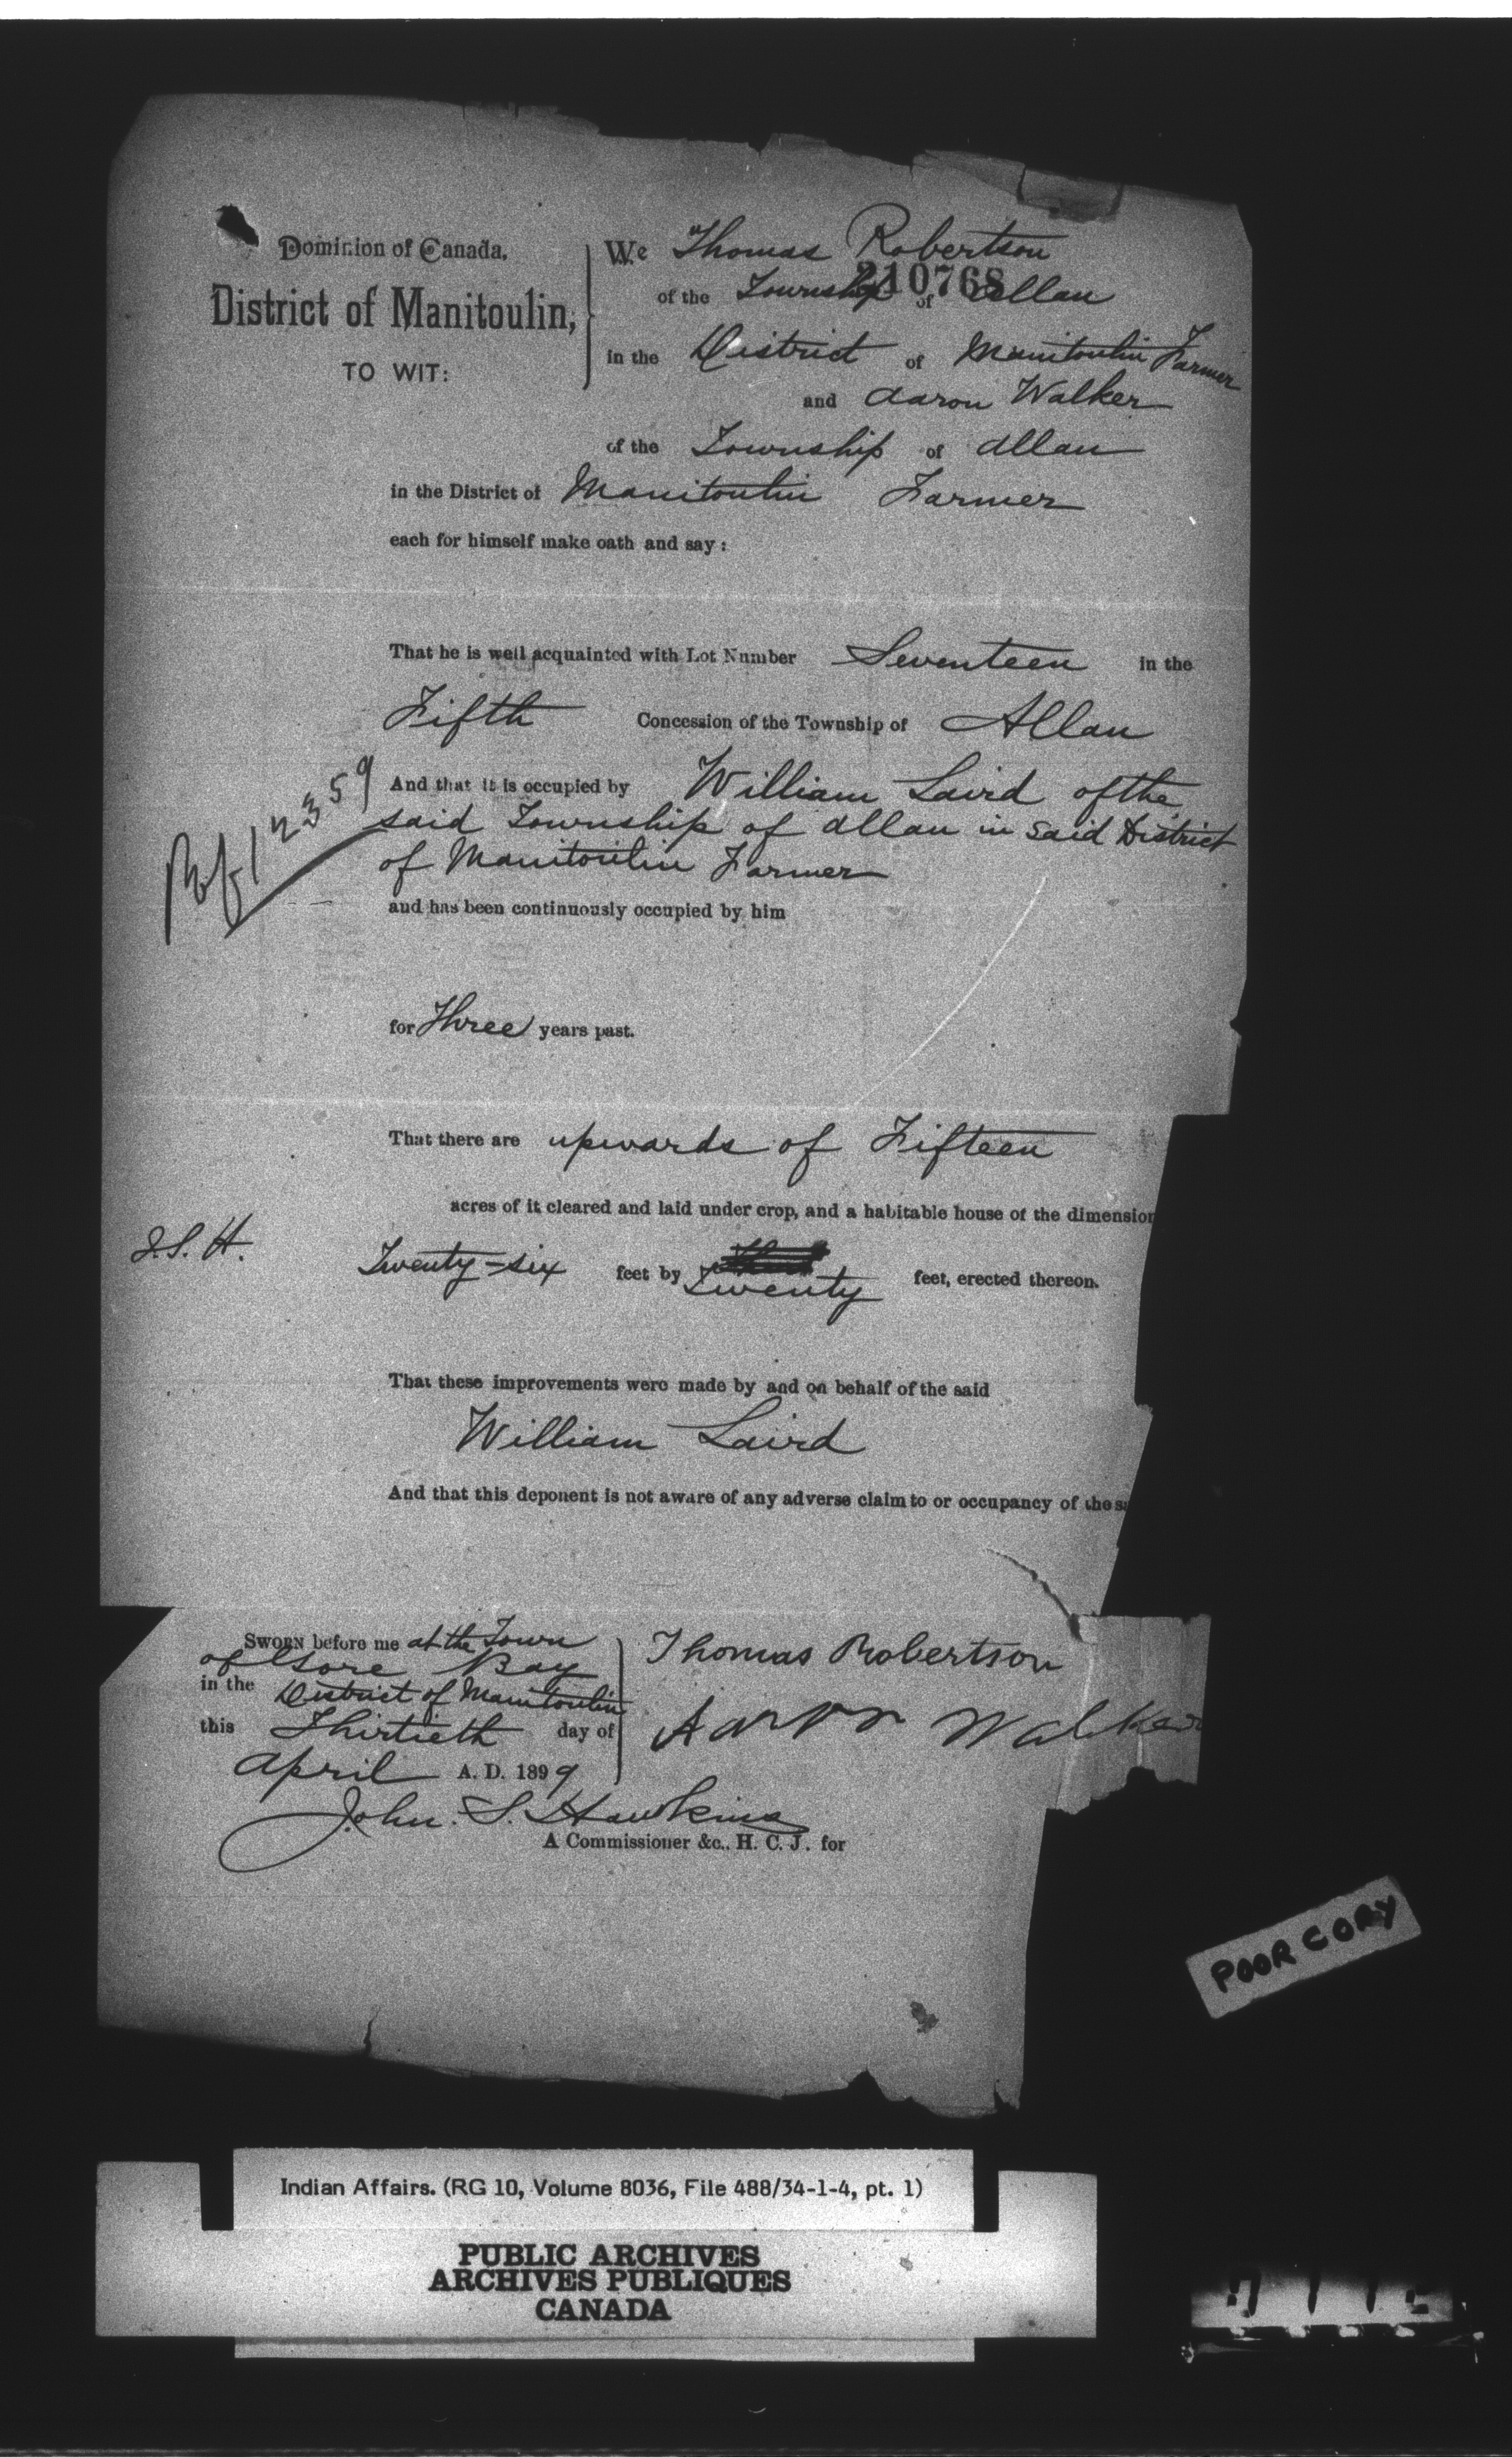 Dominion of Canada,
District of Manitoulin,
TO WIT:
We Thomas Robertson
210768
of the Township of Allan
in the District of Manitoulin Farmer
and Aaron Walker
of the Township of Allan
in the District of Manitoulin Farmer
each for himself make oath and say:
That he is well acquainted with Lot Number Seventeen in the
Fifth Concession of the Township of Allan
And that it is occupied by William Laird of the
said Township of Allan in said District
of Manitoulin Farmer
Ref 12359
and has been continuously occupied by him
for Three years past.
That there are upwards of Fifteen
acres of it cleared and laid under crop, and a habitable house of the dimension
J. S. H. Twenty-six feet by Twenty feet, erected thereon.
That these improvements were made by and on behalf of the said
William Laird
And that this deponent is not aware of any adverse claim to or occupancy of the sa
SWORN before me at the Town
of Gore Bay
in the District of Manitoulin
this Thirtieth day of
April A. D. 1899
Thomas Robertson
Aaron Walker
John. S. Hawkins
A Commissioner &c., H. C. J. for
POOR COPY
Indian Affairs. (RG 10, Volume 8036, File 488/34-1-4, pt. 1)
PUBLIC ARCHIVES
ARCHIVES PUBLIQUES
CANADA